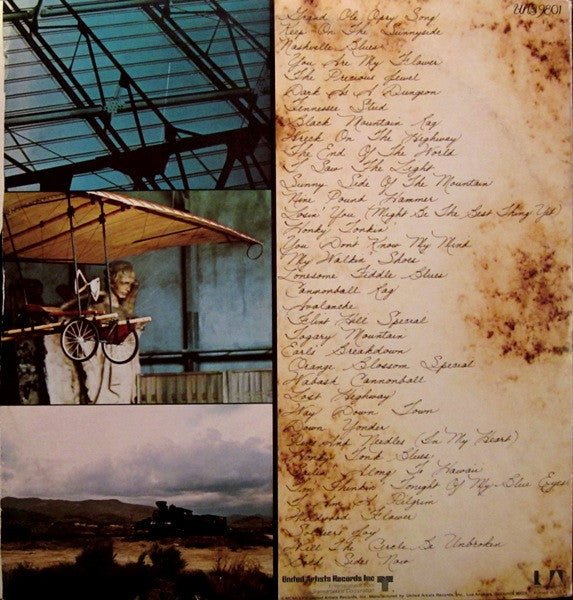 UAS 9801
Grand Ole Opry Song
Keep On The Sunnyside
Nashville Blues
You Are My Flower
The Precious Jewel
Dark As A Dungeon
Tennessee Stud
Black Mountain Rag
Wreck On The Highway
The End Of The World
I Saw The Light
Sunny Side Of The Mountain
Nine Pound Hammer
Losin' You (Might Be The Best Thing Yet)
Honky Tonkin'
You Don't Know My Mind
My Walkin' Shoes
Lonesome Fiddle Blues
Cannonball Rag
Avalanche
Flint Hill Special
Togary Mountain
Earl's Breakdown
Orange Blossom Special
Wabash Cannonball
Lost Highway
Way Down Town
Down Yonder
Pins And Needles (In My Heart)
Honky Tonk Blues
Sailin' Along To Hawaii
I'm Thinkin' Tonight Of My Blue Eyes
I Am A Pilgrim
Wildwood Flower
Soldier's Joy
Will The Circle Be Unbroken
Both Sides Now
United Artists Records Inc
Transamerica Corporation
United Artists Records, Inc., Manufactured by United Artists Records, Inc., Los Angeles, California 90028
UA